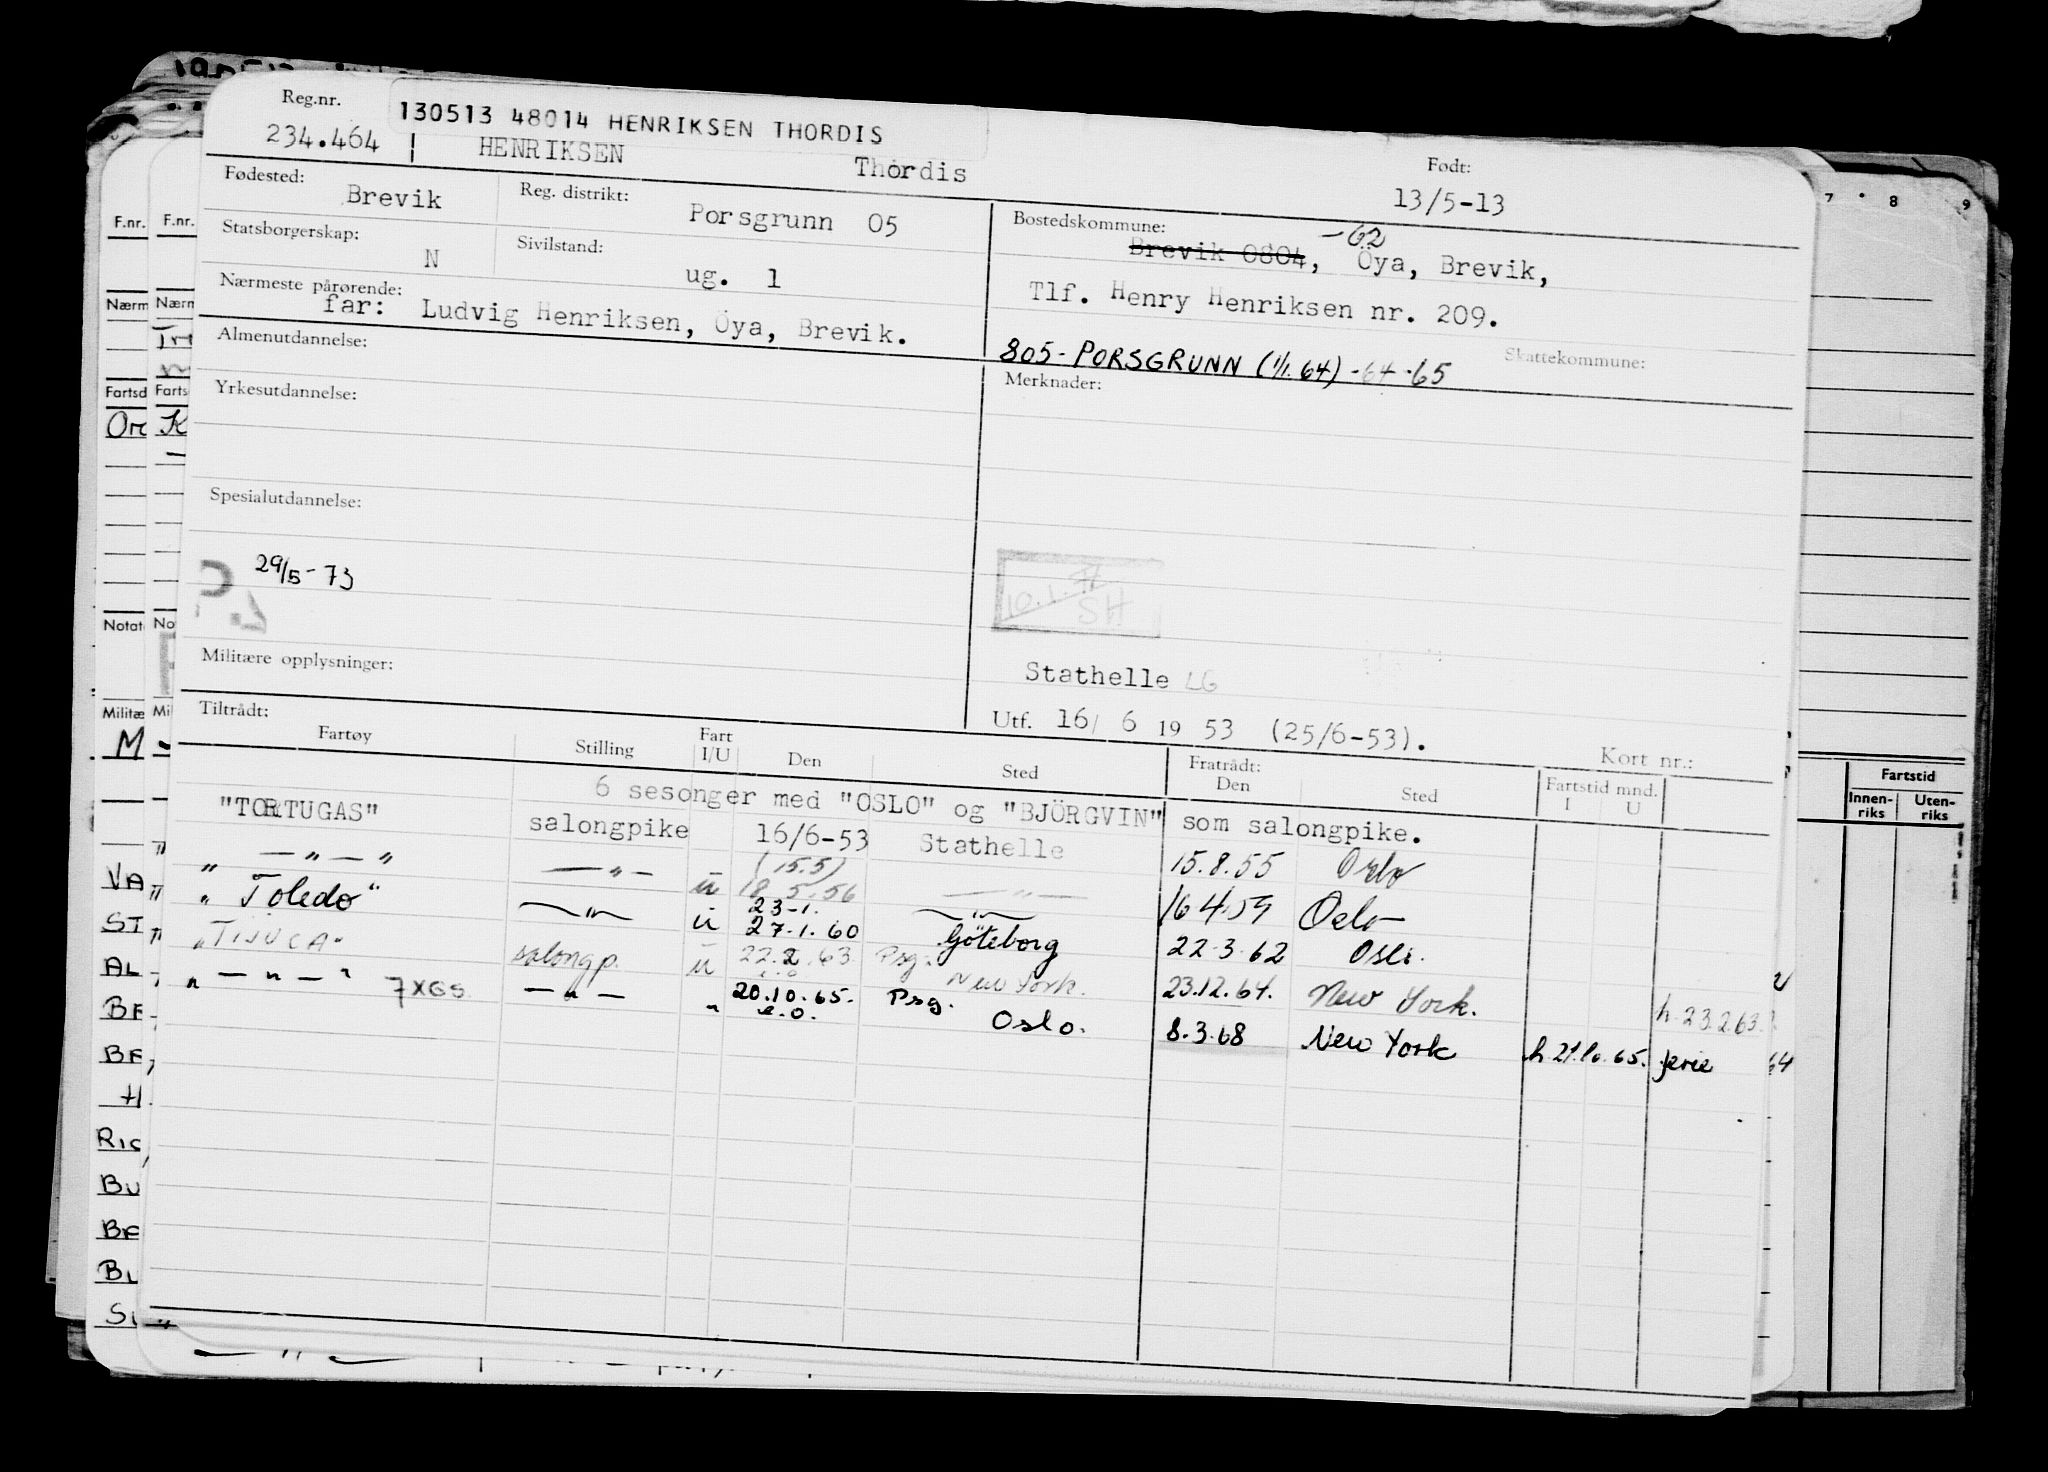 Reg.nr. 130513 48014 HENRIKSEN THORDIS
234.464 HENRIKSEN Thordis Født: 13/5-13
Fødested: Brevik Reg. distrikt: Porsgrunn 05
Statsborgerskap: N Sivilstand: ug. 1
Nærmeste pårørende:
far: Ludvig Henriksen, Öya, Brevik.
Bostedskommune: -62
Brevik 0804, Öya, Brevik,
Tlf. Henry Henriksen nr. 209.
805-PORSGRUNN (1/1.64) -64-65 Skattekommune:
Almenutdannelse:
Merknader:
Yrkesutdannelse:
Spesialutdannelse:
29/5-73
10.1. SH
Militære opplysninger:
Stathelle LG
Utf. 16/ 6 19 53 (25/6-53).
Kort nr.:
Tiltrådt:
Fartøy Stilling Fart I/U Den Sted Fratrådt: Den Sted Fartstid mnd. I U
6 sesonger med "OSLO" og "BJÖRGVIN" som salongpike.
"TORTUGAS" salongpike 16/6-53 Stathelle 15.8.55 Oslo
" — " — " — " — u (15.5) 18.5.56 — " — 16.4.59 Oslo
" Toledo " — " — u 23-1. 27.1.60 Göteborg 22.3.62 Oslo.
"TIJUCA" salongp. u 22.2.63 Psg. New York. 23.12.64. New York. h.23.2.63.
" — " — " 7XGS — " — " 20.10.65. e.o. Psg. Oslo. 8.3.68 New York h 21.10.65. ferie
F.nr. F.nr.
Nærm Nærm
Fartsd Farts
Notat No
Militæ Mil
M
VA
ST
AL
BE
BE
H
RIS
BU
BE
BL
7 8 9
Fartstid
Innen-riks Uten-riks
64